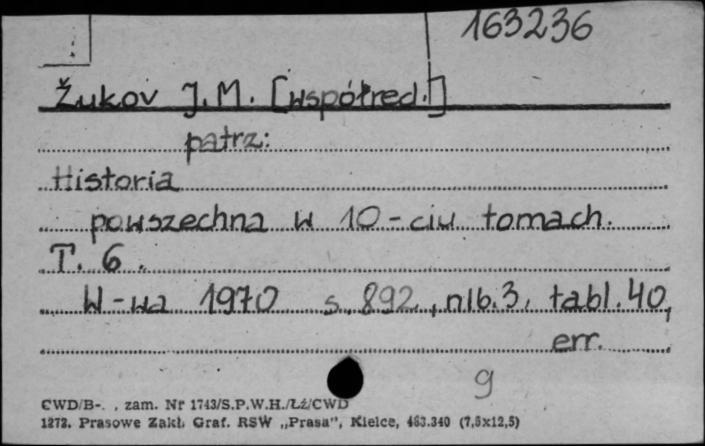 163236
Žukov J.M. [współred.]
patrz:
Historia
powszechna w 10-ciu tomach.
T. 6.
W-wa 1970 s. 892, nlb. 3, tabl. 40,
err.
9
CWD/B-. , zam. Nr 1743/S.P.W.H./Łź/CWD
1273. Prasowe Zakł. Graf. RSW „Prasa", Kielce, 463.340 (7,5x12,5)